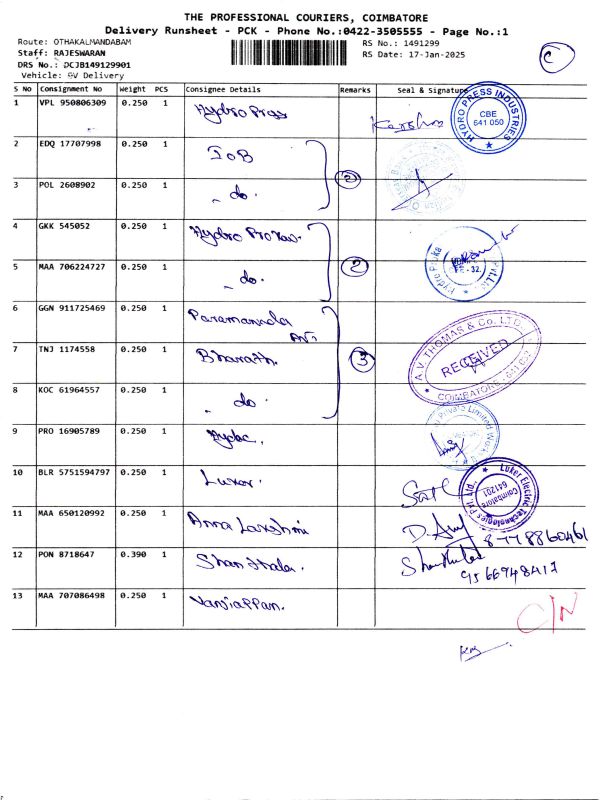 THE PROFESSIONAL COURIERS, COIMBATORE
Delivery Runsheet - PCK - Phone No.:0422-3505555 - Page No.:1
Route: OTHAKALMANDABAM
RS No.: 1491299
Staff: RAJESWARAN
RS Date: 17-Jan-2025
DRS No.: DCJB149129901
Vehicle: BV Delivery
C
S No Consignment No Weight PCS Consignee Details Remarks Seal & Signature
1 VPL 950806309 0.250 1 Hydro Press
HYDRO PRESS INDUSTRIES CBE 641 050
2 EDQ 17707998 0.250 1 IOB
3 POL 2608902 0.250 1 - do. 2
4 GKK 545052 0.250 1 Hydro
5 MAA 706224727 0.250 1 - do. 2
6 GGN 911725469 0.250 1
7 TNJ 1174558 0.250 1 Bharath. 3
A.V. THOMAS & Co. LTD. RECEIVED COIMBATORE
8 KOC 61964557 0.250 1 - do.
9 PRO 16905789 0.250 1
Private Limited
10 BLR 5751594797 0.250 1
Luker Electric Technologies Pvt. Ltd., Coimbatore 641201
11 MAA 650120992 0.250 1 Anna Lakshmi
8778860461
12 PON 8718647 0.390 1
9566948417
13 MAA 707086498 0.250 1 Nanjappan.
C/N